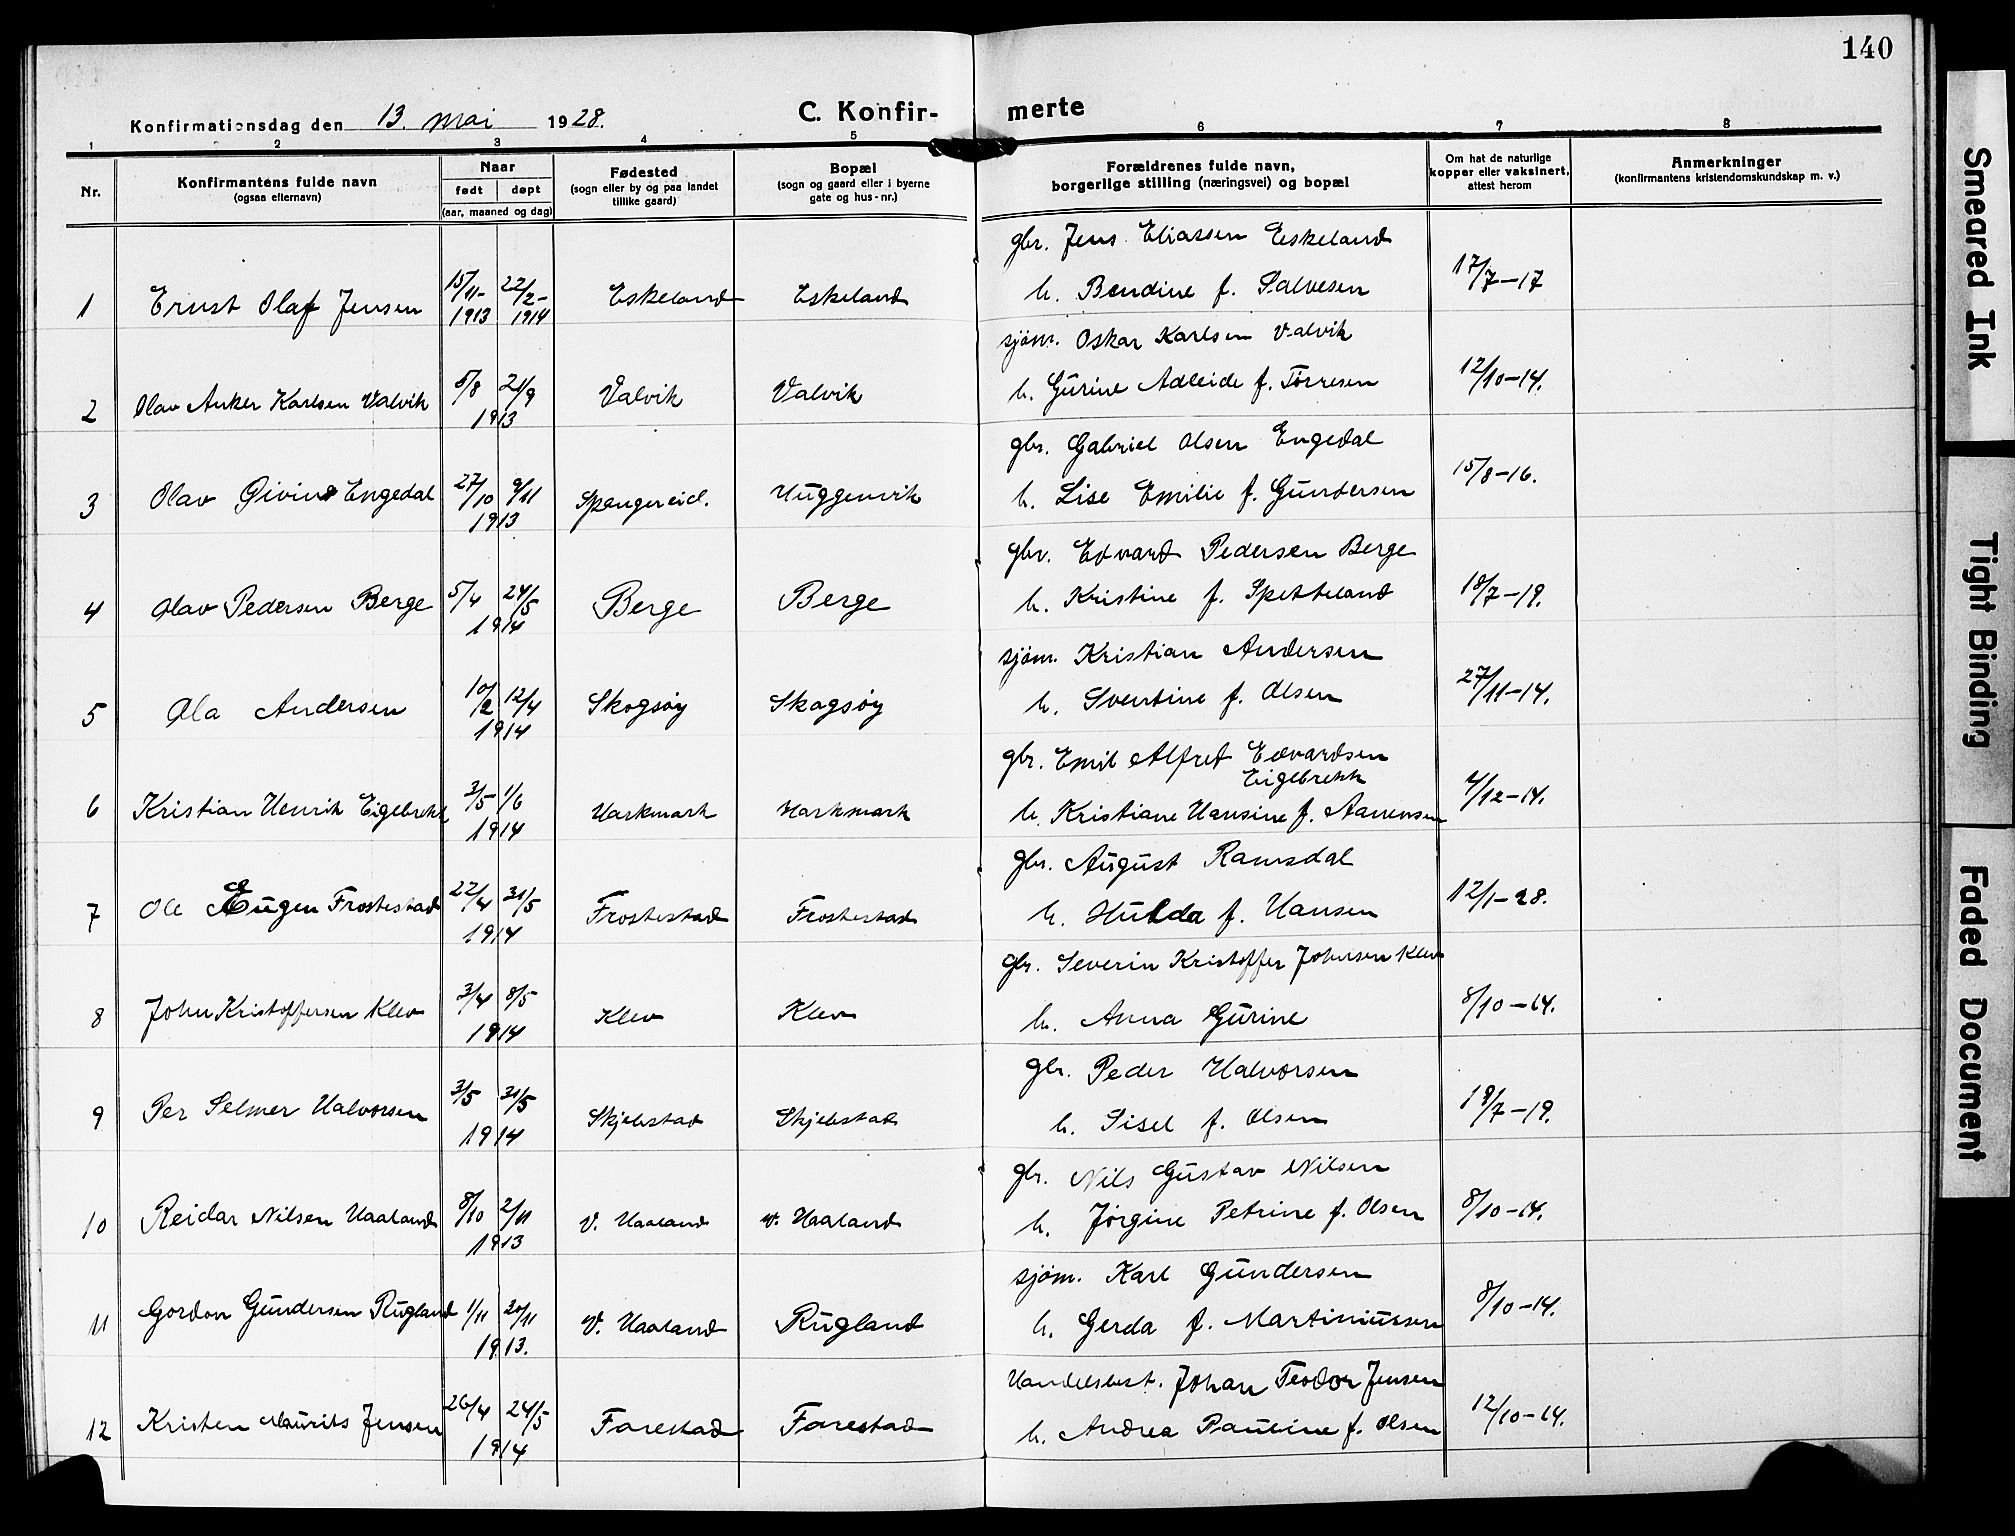 140
Konfirmationsdag den 13. mai 1928.
C. Konfir- merte
1 2 3 4 5 6 7 8
Nr.
Konfirmantens fulde navn
(ogsaa efternavn)
Naar
født døpt
(aar, maaned og dag)
Fødested
(sogn eller by og paa landet
tillike gaard)
Bopæl
(sogn og gaard eller i byerne
gate og hus-nr.)
Forældrenes fulde navn,
borgerlige stilling (næringsvei) og bopæl
Om hat de naturlige
kopper eller vaksinert,
attest herom
Anmerkninger
(konfirmantens kristendomskundskap m. v.)
gbr. Jens Eliassen Eskeland
1 Ernst Olaf Jensen 15/11- 1913 22/2- 1914 Eskeland Eskeland h. Bendine f. Salvesen 17/7-17
sjøm. Oskar Karlsen Valvik
2 Olav Anker Karlsen Valvik 5/8 21/9 1913 Valvik Valvik h. Gurine Adleide f. Tørresen 12/10-14.
gbr. Gabriel Olsen Engedal
3 Olav Givins Engedal 27/10 9/11 1913 Spangereid. Huggenvik h. Lise Emilie f. Gundersen 15/8-16.
gbr. Edvard Pedersen Berge
4 Olav Pedersen Berge 5/4 24/5 1914 Berge Berge h. Kristine f. Spetteland 18/7-19.
sjøm. Kristian Andersen
5 Ola Andersen 10/2 12/4 1914 Skogsøy Skogsøy h. Sventine f. Olsen 27/11-14.
gbr. Emil Alfred Edvardsen
Eigebrekk
6 Kristian Henrik Eigebrekk 3/5- 1/6 1914 Harkmark Harkmark h. Kristiane Hansine f. Aanensen 4/12-14.
gbr. August Ramsdal
7 Ole Eugen Frostestad 22/4 31/5 1914 Frostestad Frostestad h. Hulda f. Hansen 12/1-28.
gbr. Severin Kristoffer Johnsen Klev
8 John Kristoffersen Klev 3/4 8/5 1914 Klev Klev h. Anna Gurine 8/10-14.
gbr. Peder Halvorsen
9 Per Selmer Halvorsen 3/5 31/5 1914 Skjebstad Skjebstad h. Sisel f. Olsen 18/7-19.
gbr. Nils Gustav Nilsen
10 Reidar Nilsen Haaland 8/10 2/11 1913 V. Haaland V. Haaland h. Jørgine Petrine f. Olsen 8/10-14.
sjøm. Karl Gundersen
11 Gordon Gundersen Rugland 1/11 20/11 1913. V. Haaland Rugland h. Gerda f. Martiniussen 8/10-14.
Handelsbest. Johan Teodor Jensen
12 Kristen Maurits Jensen 26/4 24/5 1914 Farestad Farestad h. Andrea Pauline f. Olsen 12/10-14.
Smeared Ink
Tight Binding
Faded Document